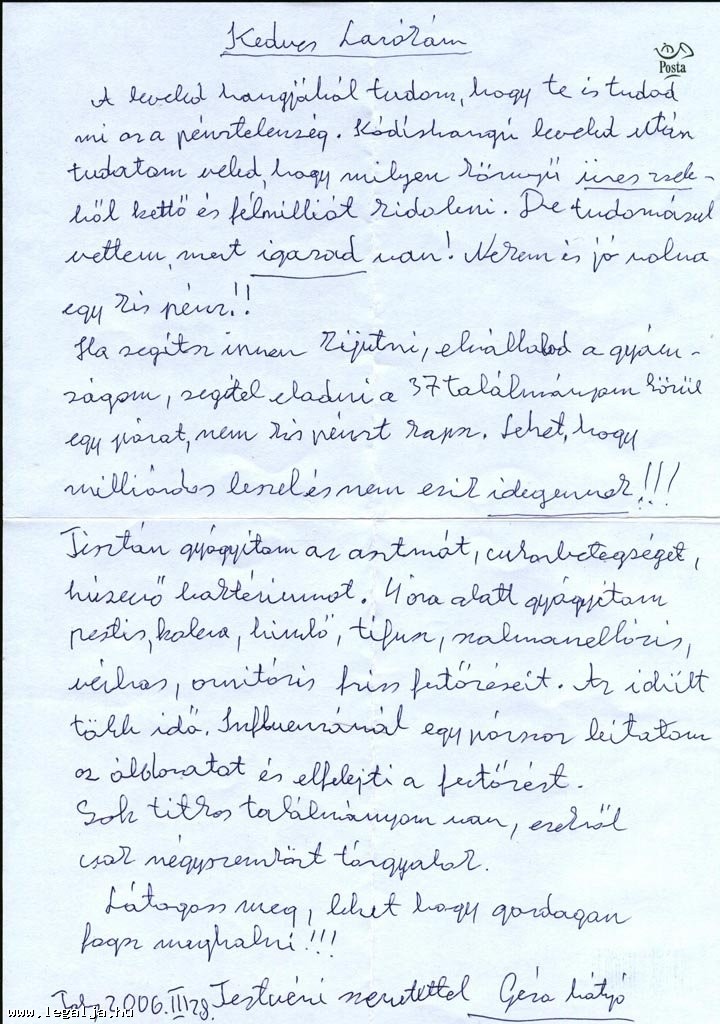 Kedves Lacókám
Posta
A leveled hangjából tudom, hogy te is tudod
mi az a pénztelenség. Kódishangú leveled után
tudatom veled, hogy milyen könnyű üres zseb-
ből kettő és félmilliót kidobni. De tudomásul
vettem, mert igazad van! Nekem is jó volna
egy kis pénz!!
Ha segítsz innen kijutni, elvállalod a gyám-
ságom, segítel eladni a 37 találmányom közül
egy párat, nem kis pénzt kapsz. Lehet, hogy
milliárdos leszel és nem ezik idegennek!!!
Tisztán gyógyítom az asztmát, cukorbetegséget,
húsevő baktériumot. 4 óra alatt gyógyítom
pestis, kolera, himlő, tífusz, szalmanellózis,
vérhas, ornitózis friss fertőzéseit. Az idült
több idő. Influenzánál egy párszor leitatom
az áldozatot és elfelejti a fertőzést.
Sok titkos találmányom van, ezekről
csak négyszemközt tárgyalok.
Látogass meg, lehet hogy gazdagan
fogsz meghalni!!!
2.006. III 28. Testvéri szeretettel Géza bátyó
www.legalja.hu